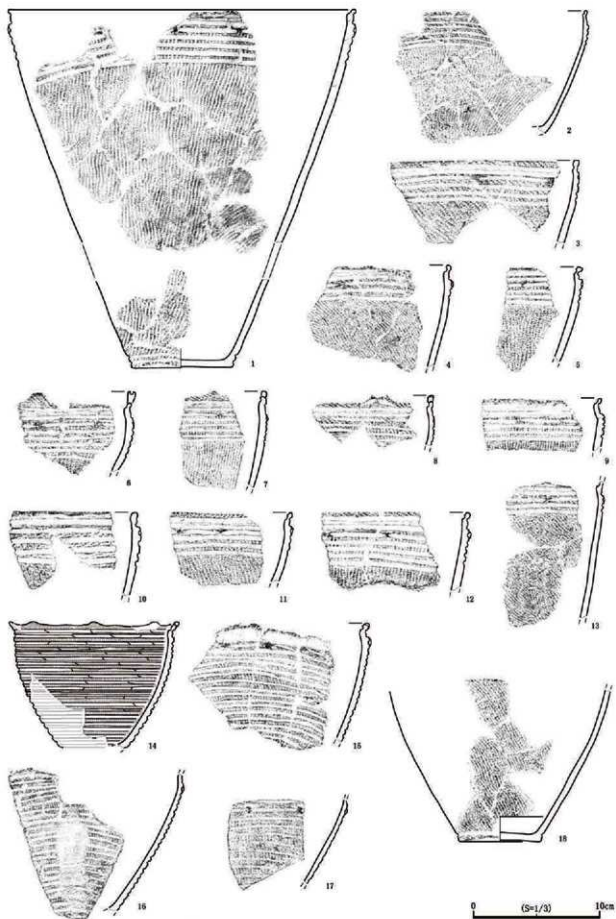 1
2
3
4
5
6
7
8
9
10
11
12
13
14
15
16
17
18
0 (S=1/3) 10cm